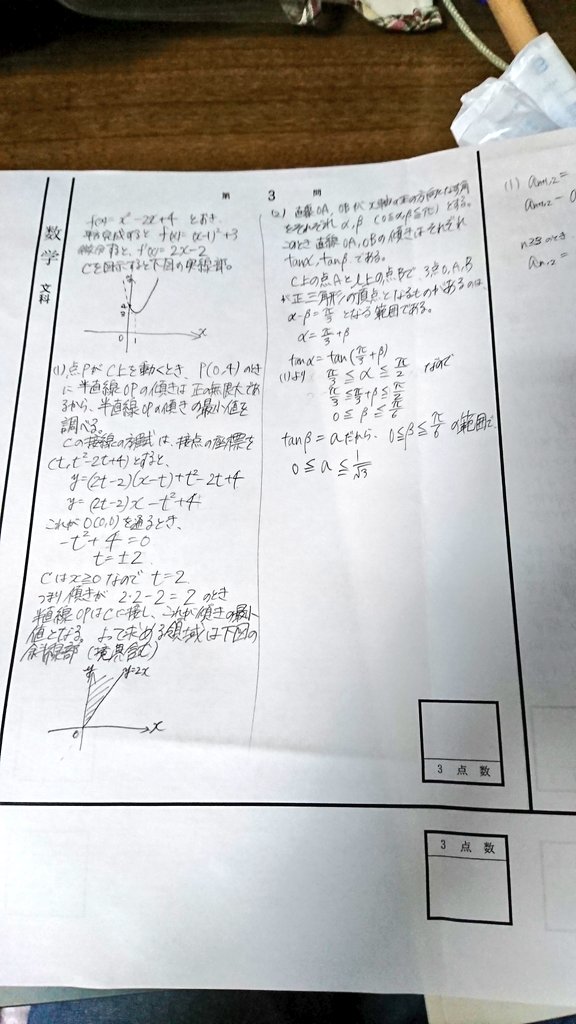 数学
文科
第 3 問
f(x)=x²-2x+4 とおき、
平方完成すると f(x)=(x-1)²+3
微分すると、f'(x)=2x-2
Cを図示すると下図の実線部。
y
4
3
0
1
x
(1) 点PがC上を動くとき、P(0,4)のとき
に半直線OPの傾きは正の無限大であ
るから、半直線OPの傾きの最小値を
調べる。
Cの接線の方程式は、接点の座標を
(t, t²-2t+4)とすると、
y=(2t-2)(x-t)+t²-2t+4
y=(2t-2)x-t²+4
これがO(0,0)を通るとき、
-t²+4=0
t=±2
Cはx≧0なので t=2
つまり傾きが 2・2-2=2 のとき
半直線OPはCに接し、これが傾きの最小
値となる。よって求める領域は下図の
斜線部(境界含む)
y
y=2x
0
x
(2) 直線OA, OBがx軸の正の方向となす角
をそれぞれα,β (0≦α,β≦π)とする。
このとき直線OA,OBの傾きはそれぞれ
tanα,tanβである。
C上の点Aとl上の点Bで 3点O,A,B
が正三角形の頂点となるものがあるのは
α-β=π/3 となる範囲である。
α=π/3+β
tanα=tan(π/3+β)
(1)より π/3≦α≦π/2 なので
π/3≦π/3+β≦π/2
0≦β≦π/6
tanβ=aだから、0≦β≦π/6 の範囲で、
0≦a≦1/√3
3 点 数
3 点 数
(1) an+1,2=
an+1,2-a
n≧3のとき
an,2=